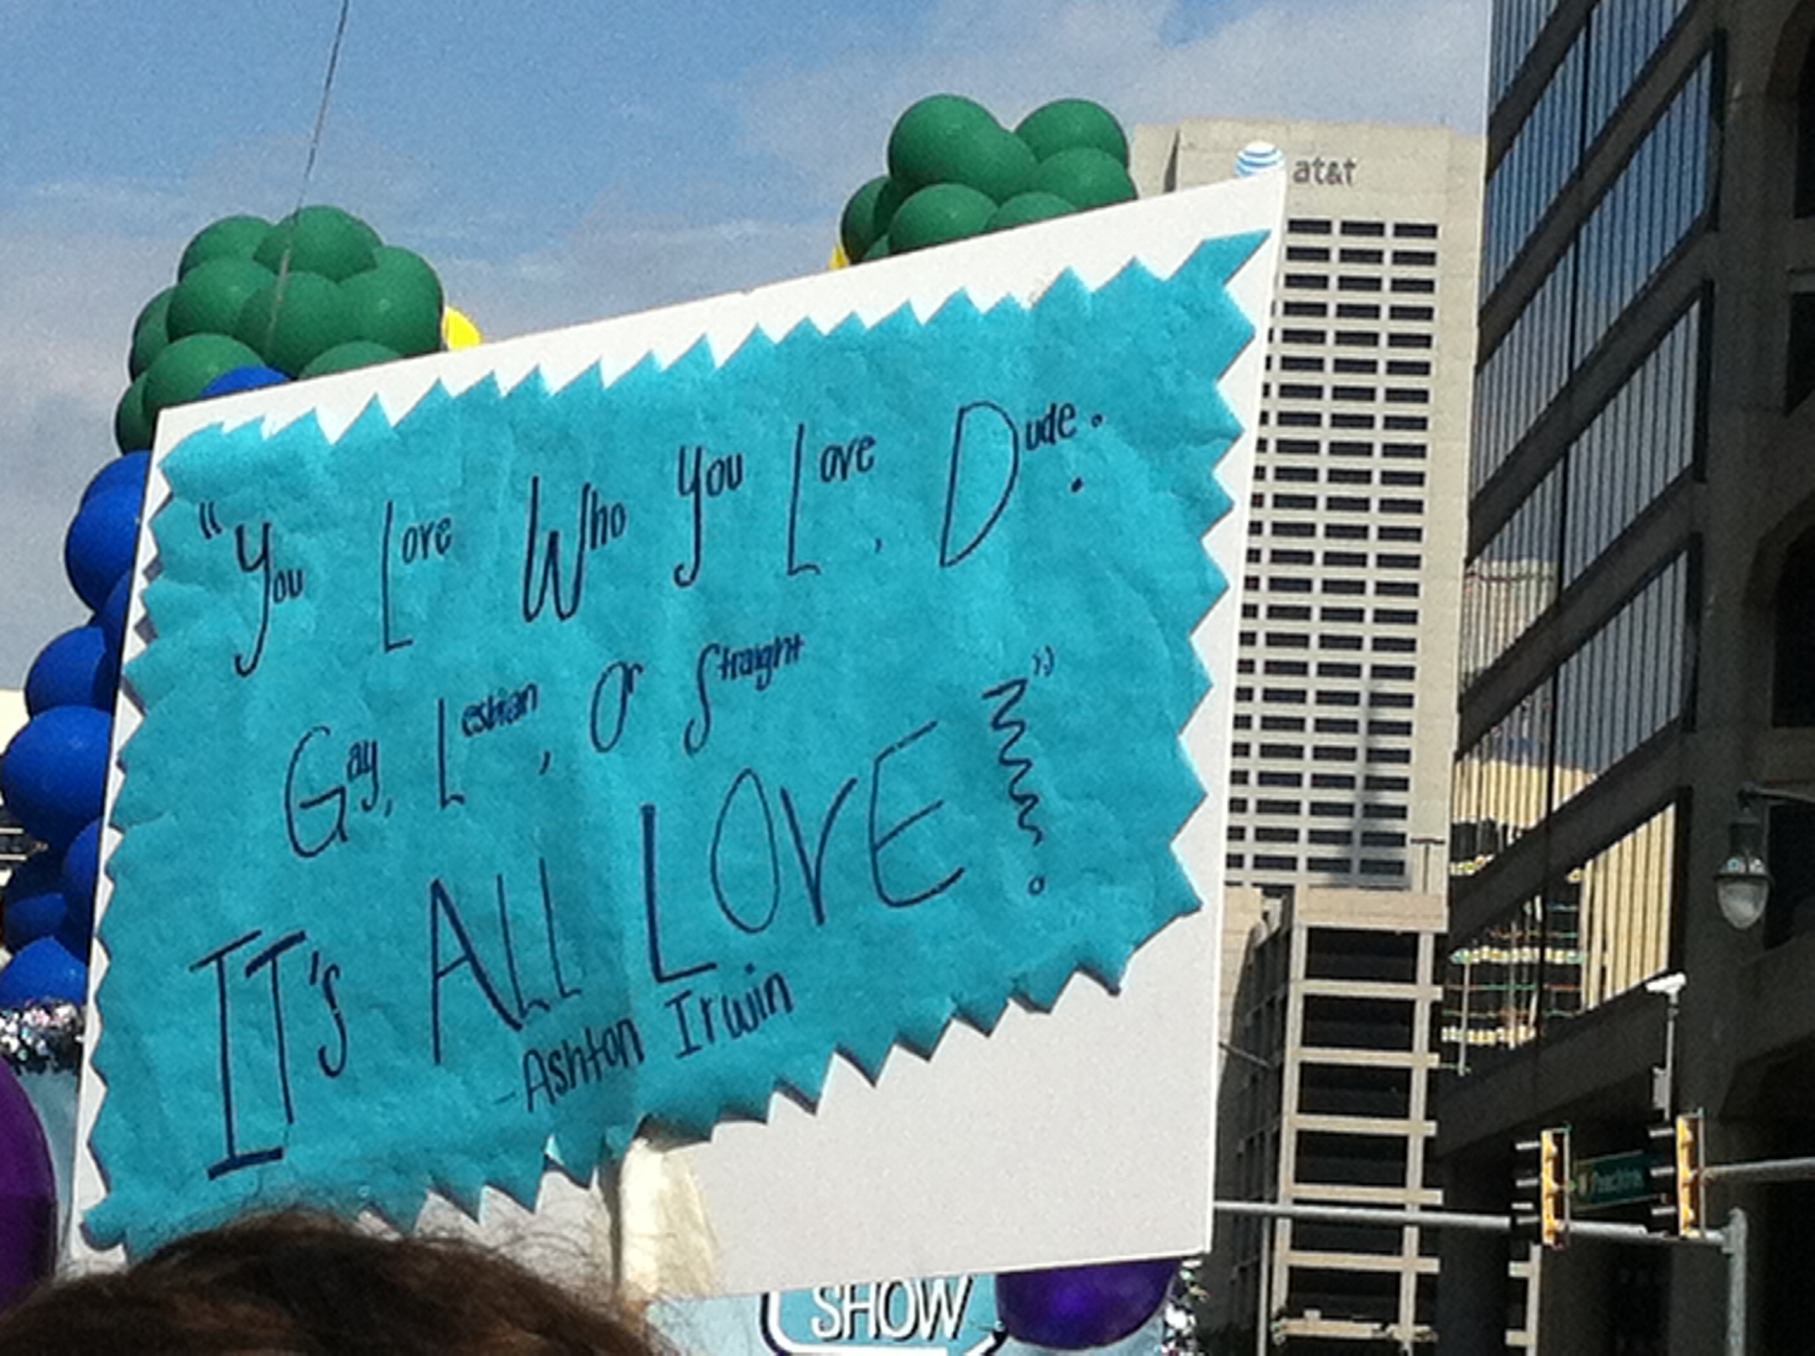 at&t
"You Love Who You Love, Dude.
Gay, Lesbian, Or Straight
IT's ALL LOVE!"
-Ashton Irwin
Peachtree
SHOW